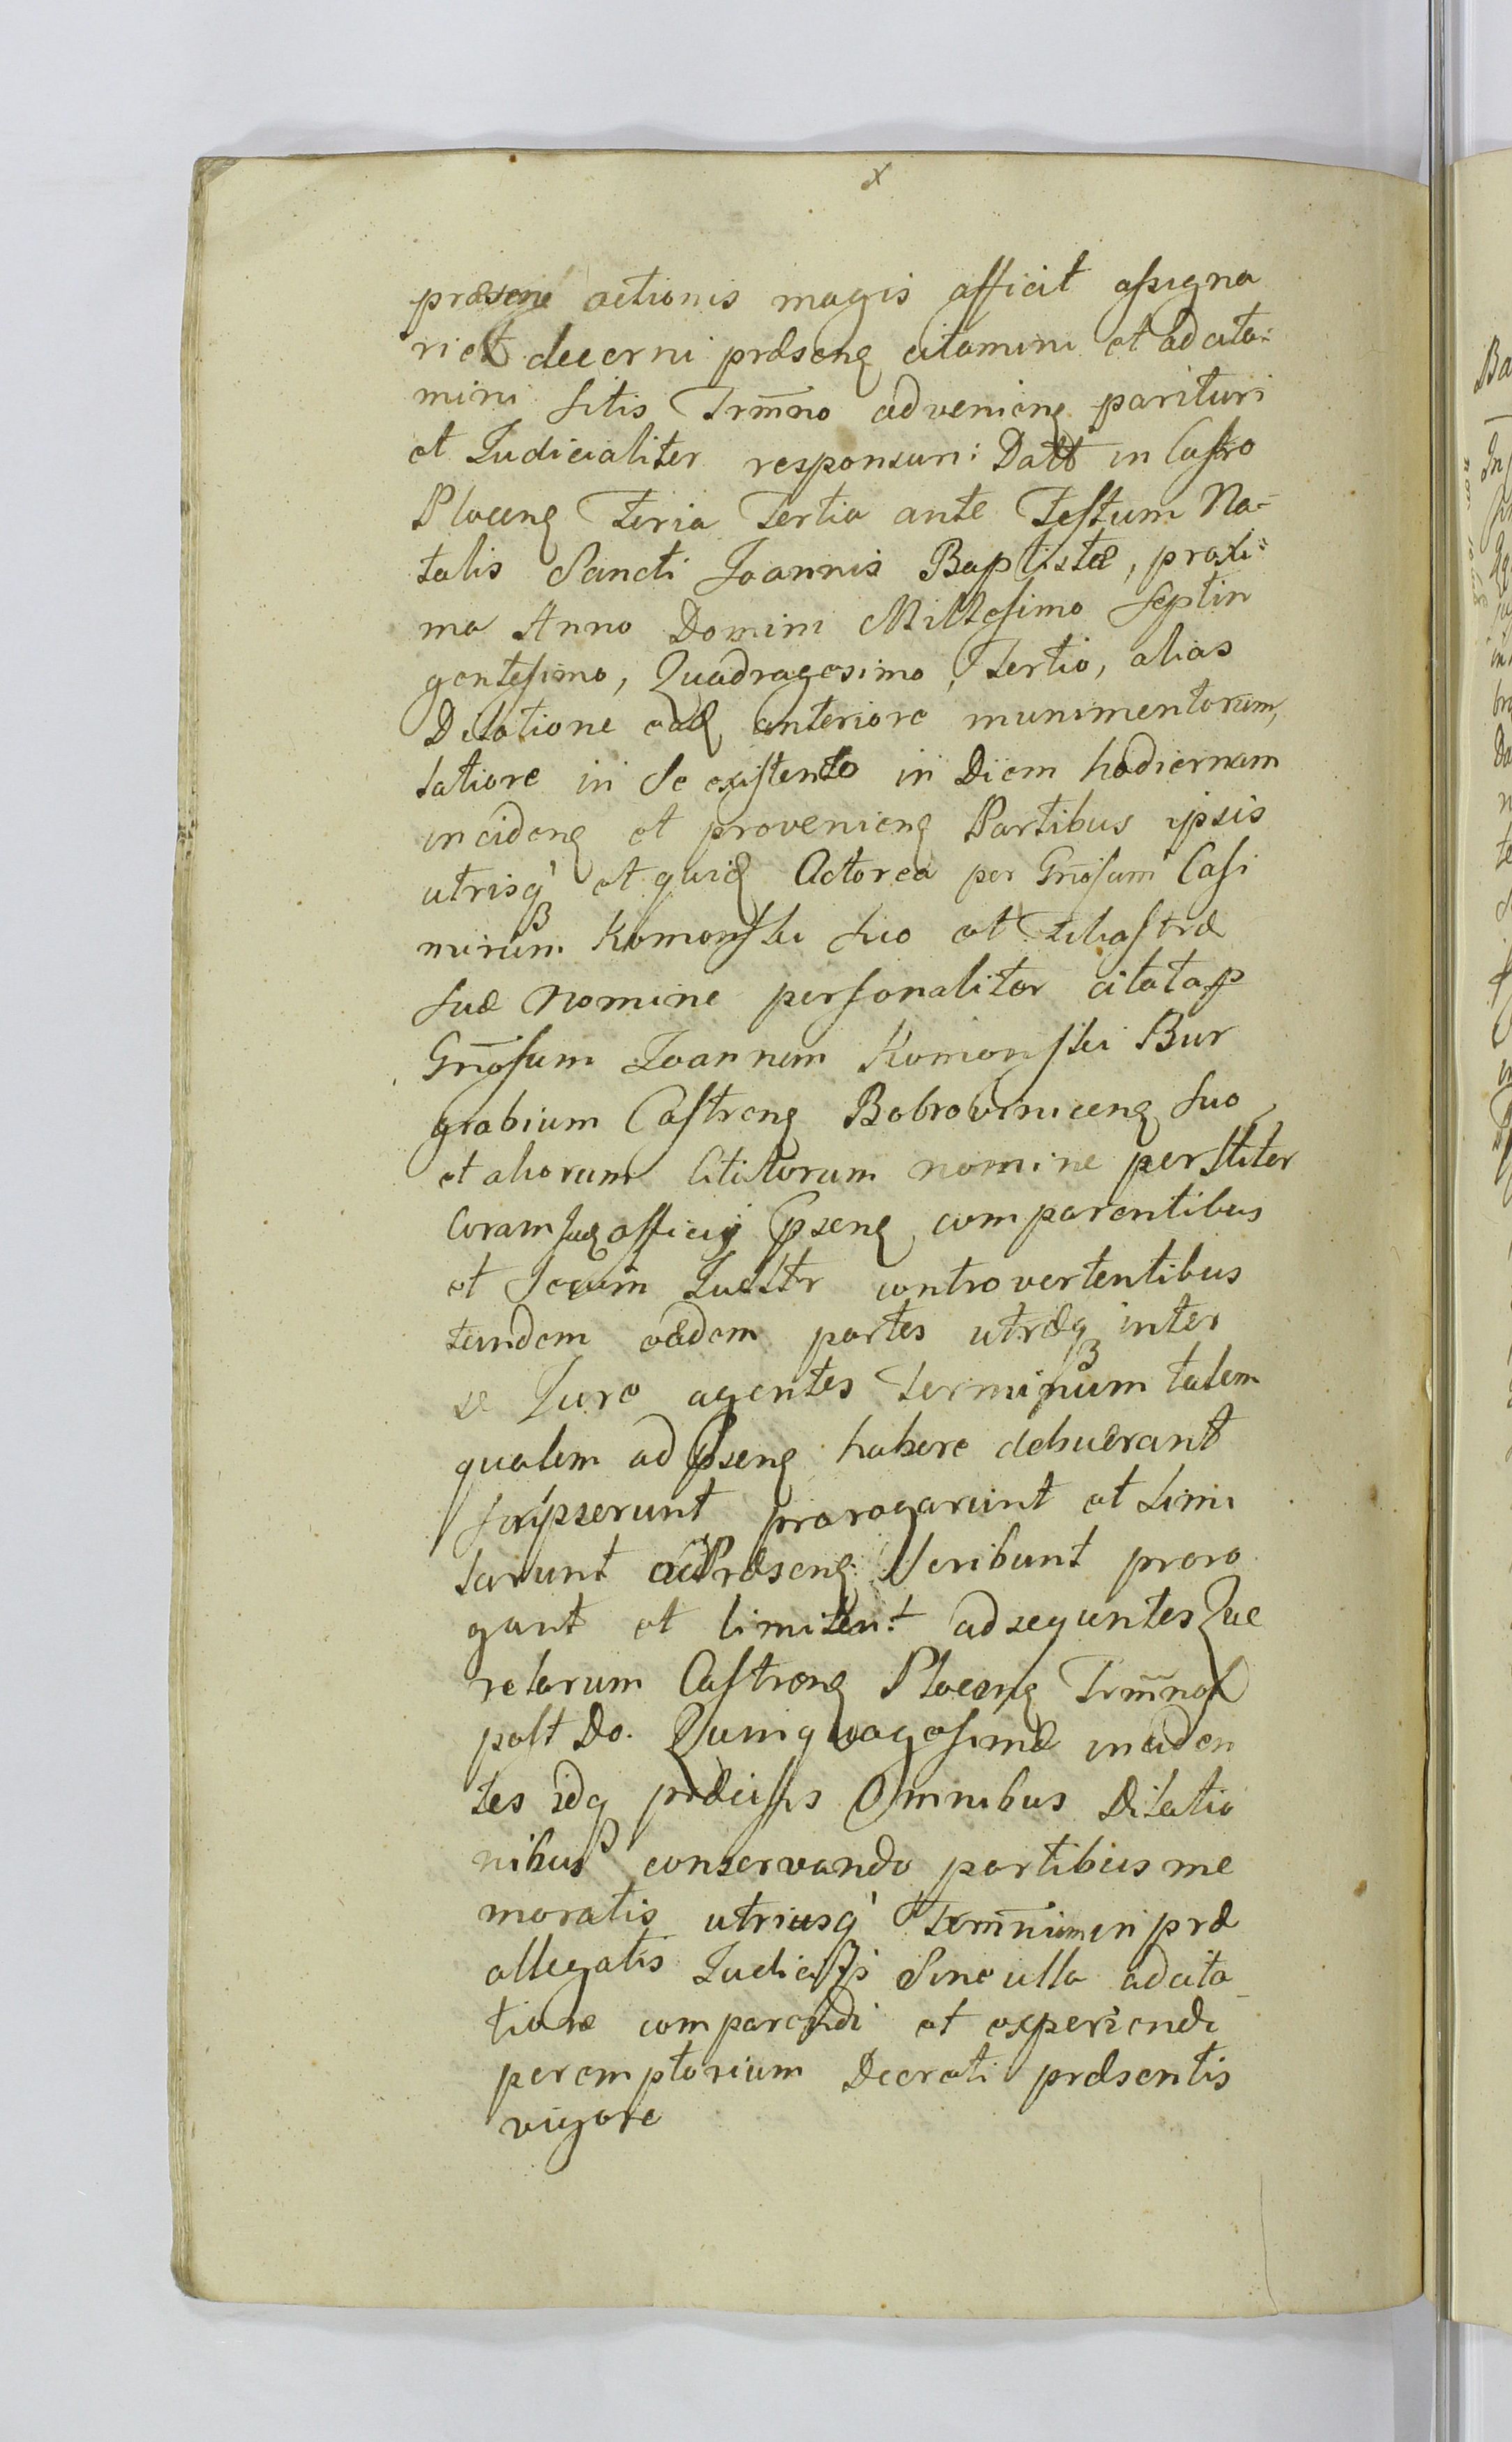 x
præsens actionis magis afficit assigna
ri et decerni præsenẹ citamini et adcita:
mini sitis Trm̃no advenienẹ parituri
et Iudicialiter responsuri: Datt in Castro
Plocenẹ Feria Tertia ante Festum Na=
talis Sancti Joannis Baptistæ, proxi=
ma Anno Domini Millesimo Septin
gentesimo, Quadragesimo, Tertio, alias
Dilatione eadẹ anteriore munimentorum,
latiore in se existente in Diem hodiernam
incidenẹ et provenienẹ Partibus ipsis
utrisq' et quidẹ Actorea per Gnosum Casi
mirum Komonski suo et Filiastræ
suæ nomine personaliter citata p
Gnosum Joannem Komonski Bur
grabium Castrenẹ Bobrovnicenẹ suo
et aliorum Citatorum nomine persliter
Coram Judẹ officij pseng comparentibus
et Secum Judltr controvertentibus
tandem eædem partes utræq inter
se Jure agentes Terminum talem
qualem ad psenẹ habere debuerant
scripserunt prorogarunt et limi
tarunt ac Præsenẹ Scribunt proro
gant et limitant ad sequntes Que
relarum Castrenẹ Plocenẹ Trm̃nos
post Do. Quinquagesimæ inciden
tes idq præcisis Omnibus Dilatio
nibus conservando partibus me
moratis utriusq' Term̃inum in præ
allegatis Judicijs Sine ulla adcita_
tione comparendi et experiendi
peremptorium Decreti præsentis
vigore